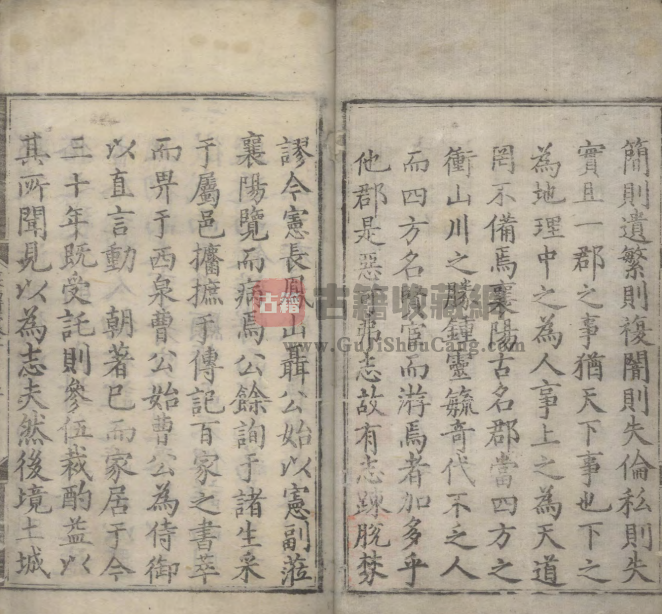 簡則遺繁則複闇則失倫私則失
實且一郡之事猶天下事也下之
為地理中之為人事上之為天道
罔不備焉襄陽古名郡當四方之
衝山川之勝鍾靈毓竒代不乏人
而四方名賢宦而游焉者加多乎
他郡是惡可弗志故有志踈脫棼
謬今憲長鳳山聶公始以憲副蒞
襄陽覽而病焉公餘詢于諸生采
于屬邑攟摭于傳記百家之書萃
而畀于西泉曹公始曹公為侍御
以直言動朝著已而家居于今
三十年既受託則參伍裁酌益以
其所聞見以為志夫然後境土城
古籍
古籍收藏網
www.GuJiShouCang.com